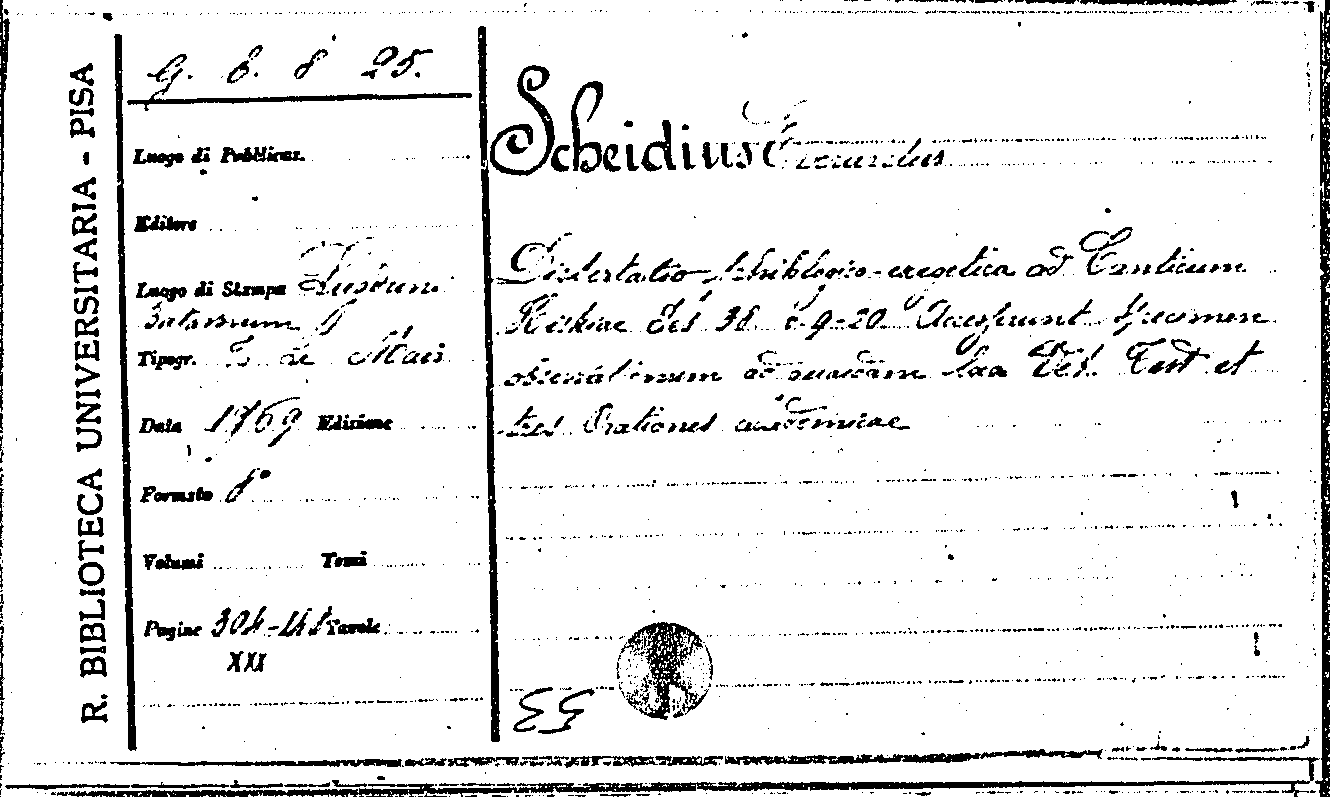 R. BIBLIOTECA UNIVERSITARIA - PISA
G. b. 8 25.
Luogo di Pubblicaz.
Editore
Luogo di Stampa Lugduni
Batavorum
Tipogr. Le Mair
Data 1769 Edizione
Formato 8°
Volumi Tomi
Pagine 304- Tavole
XXI
Scheidius Everardus
Dissertatio philologico-exegetica ad Canticum
Hiskiae Jes 38 v. 9-20 Accesserunt Specimen
observationum ad quaedam loca Vet. Test et
tres Orationes academicae
53